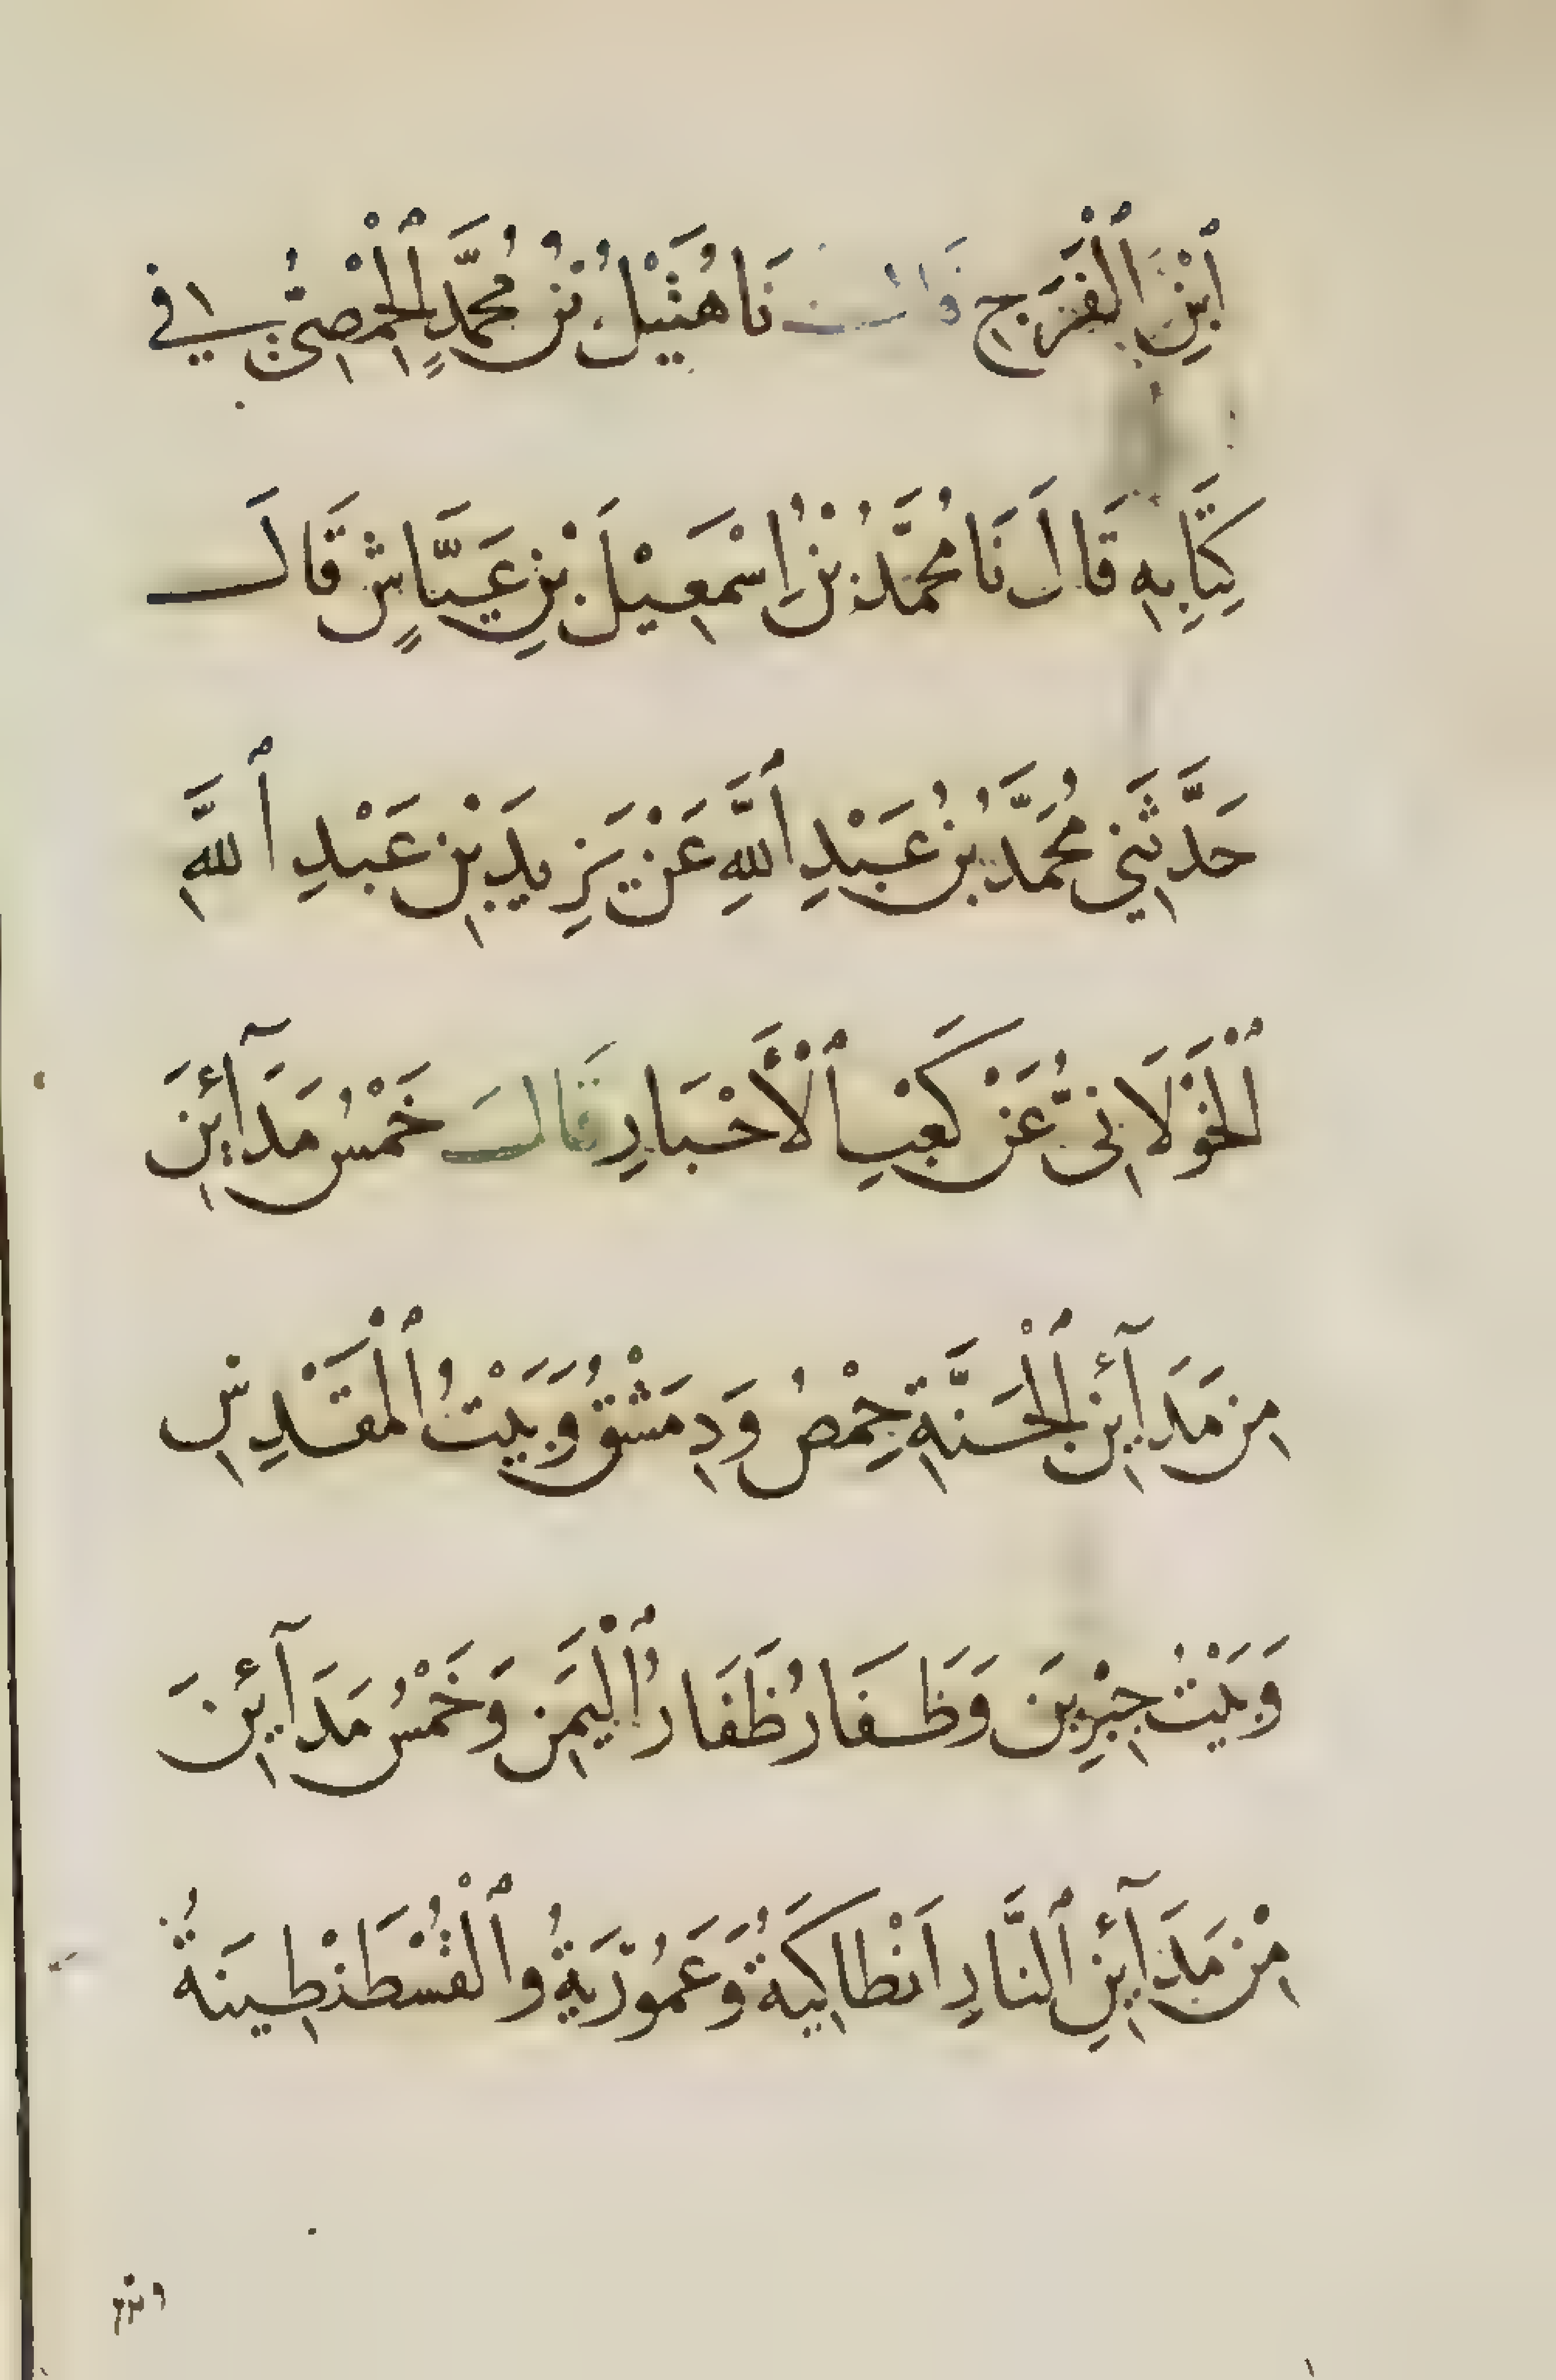 ٱبْنِ ٱلْفَرَجِ قَالَ نَا هُثَيْلُ بْنُ مُحَمَّدٍ ٱلْحِمْصِيُّ فِي
كِتَابِهِ قَالَ نَا مُحَمَّدُ بْنُ إِسْمَعِيْلَ بْنِ عَيَّاشٍ قَالَ
حَدَّثَنِي مُحَمَّدُ بْنُ عَبْدِ ٱللَّهِ عَنْ يَزِيدَ بْنِ عَبْدِ ٱللَّهِ
ٱلْخَوْلَانِيِّ عَنْ كَعْبِ ٱلْأَحْبَارِ قَالَ خَمْسُ مَدَآئِنَ
مِن مَدَآئِنِ ٱلْجَنَّةِ حِمْصُ وَدِمَشْقُ وَبَيْتُ ٱلْمَقْدِسِ
وَبَيْتُ جِبْرِينَ وَظَفَارُ ظَفَارُ ٱلْيَمَنِ وَخَمْسُ مَدَآئِنَ
مِنْ مَدَآئِنِ ٱلنَّارِ اَنْطَاكِيَةُ وَعَمُوْرِيَةُ وَٱلْقُسْطَنْطِينَةُ